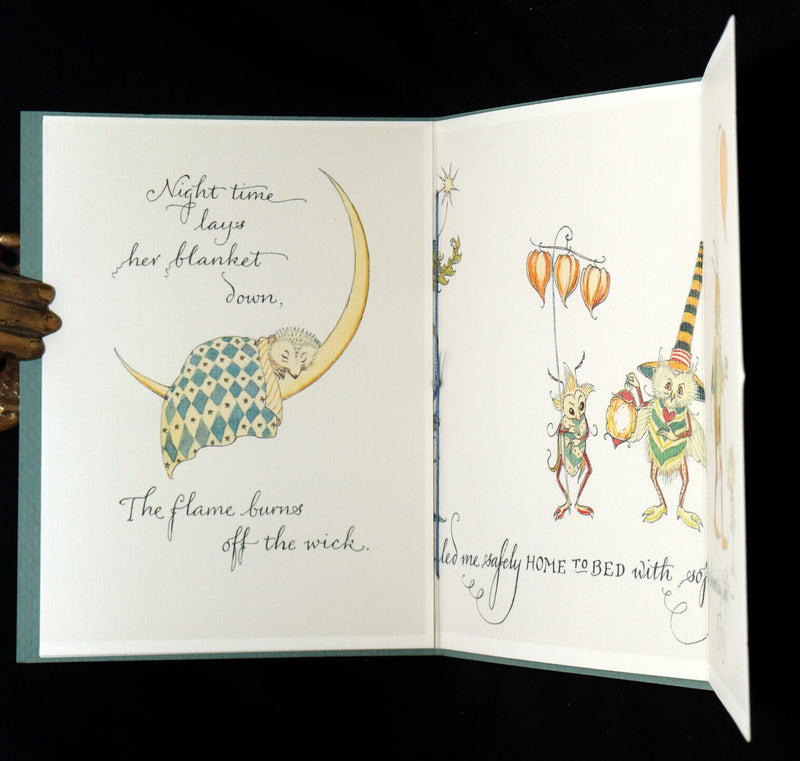 Night time
lays
her blanket
down,
The flame burns
off the wick.
led me safely HOME TO BED with